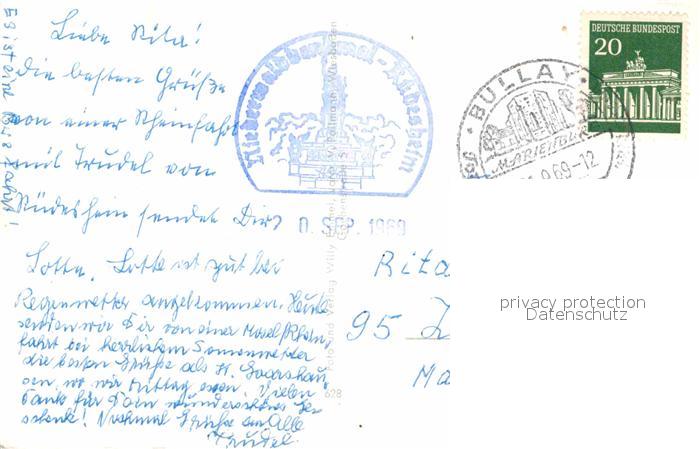 Liebe Rita!
die besten Grüße
von einer Rheinfahrt
mit Trudel von
Rüdesheim sendet Dir
Lotte. Lotte ist gut bei
Regenwetter angekommen. Heute
senden wir Dir von einer Mosel/Rhein,
fahrt bei herrlichem Sonnenwetter
die besten Grüße als St. Goarshau
sen, wo wir Mittag essen. Vielen
Dank für Dein wunderschönes Ge-
schenk! Nochmal Grüße an Alle
Trudel.
Es ist eine
Niederwalddenkmal - Rüdesheim
0. SEP. 1969
DEUTSCHE BUNDESPOST
20
BULLAY
MARIENBURG
9.69-12
Foto und Verlag Willy
628
Rita
95 Z
Ma
privacy protection
Datenschutz